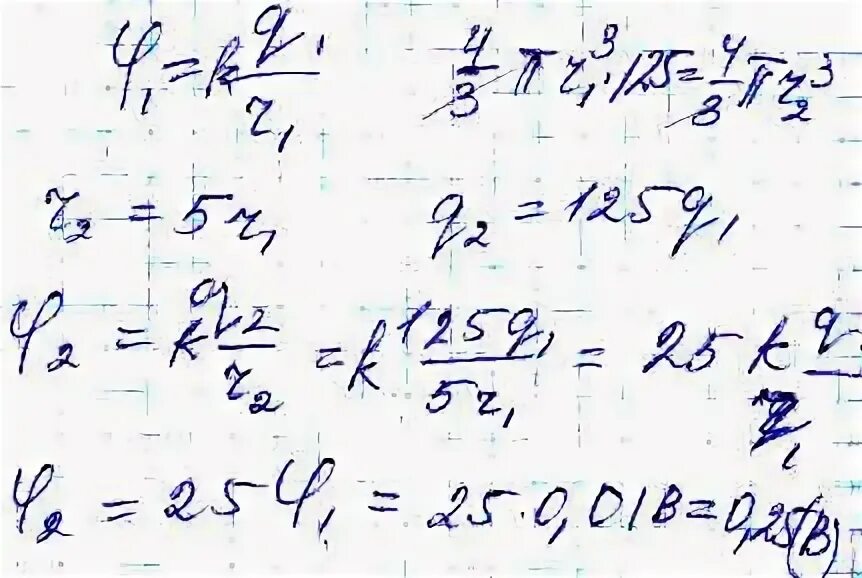 φ₁ = k q₁/r₁   4/3 π r₁³ · 125 = 4/3 π r₂³
r₂ = 5r₁   q₂ = 125q₁
φ₂ = k q₂/r₂ = k 125q₁/5r₁ = 25 k q/r₁
φ₂ = 25 φ₁ = 25 · 0,01В = 0,25(В)